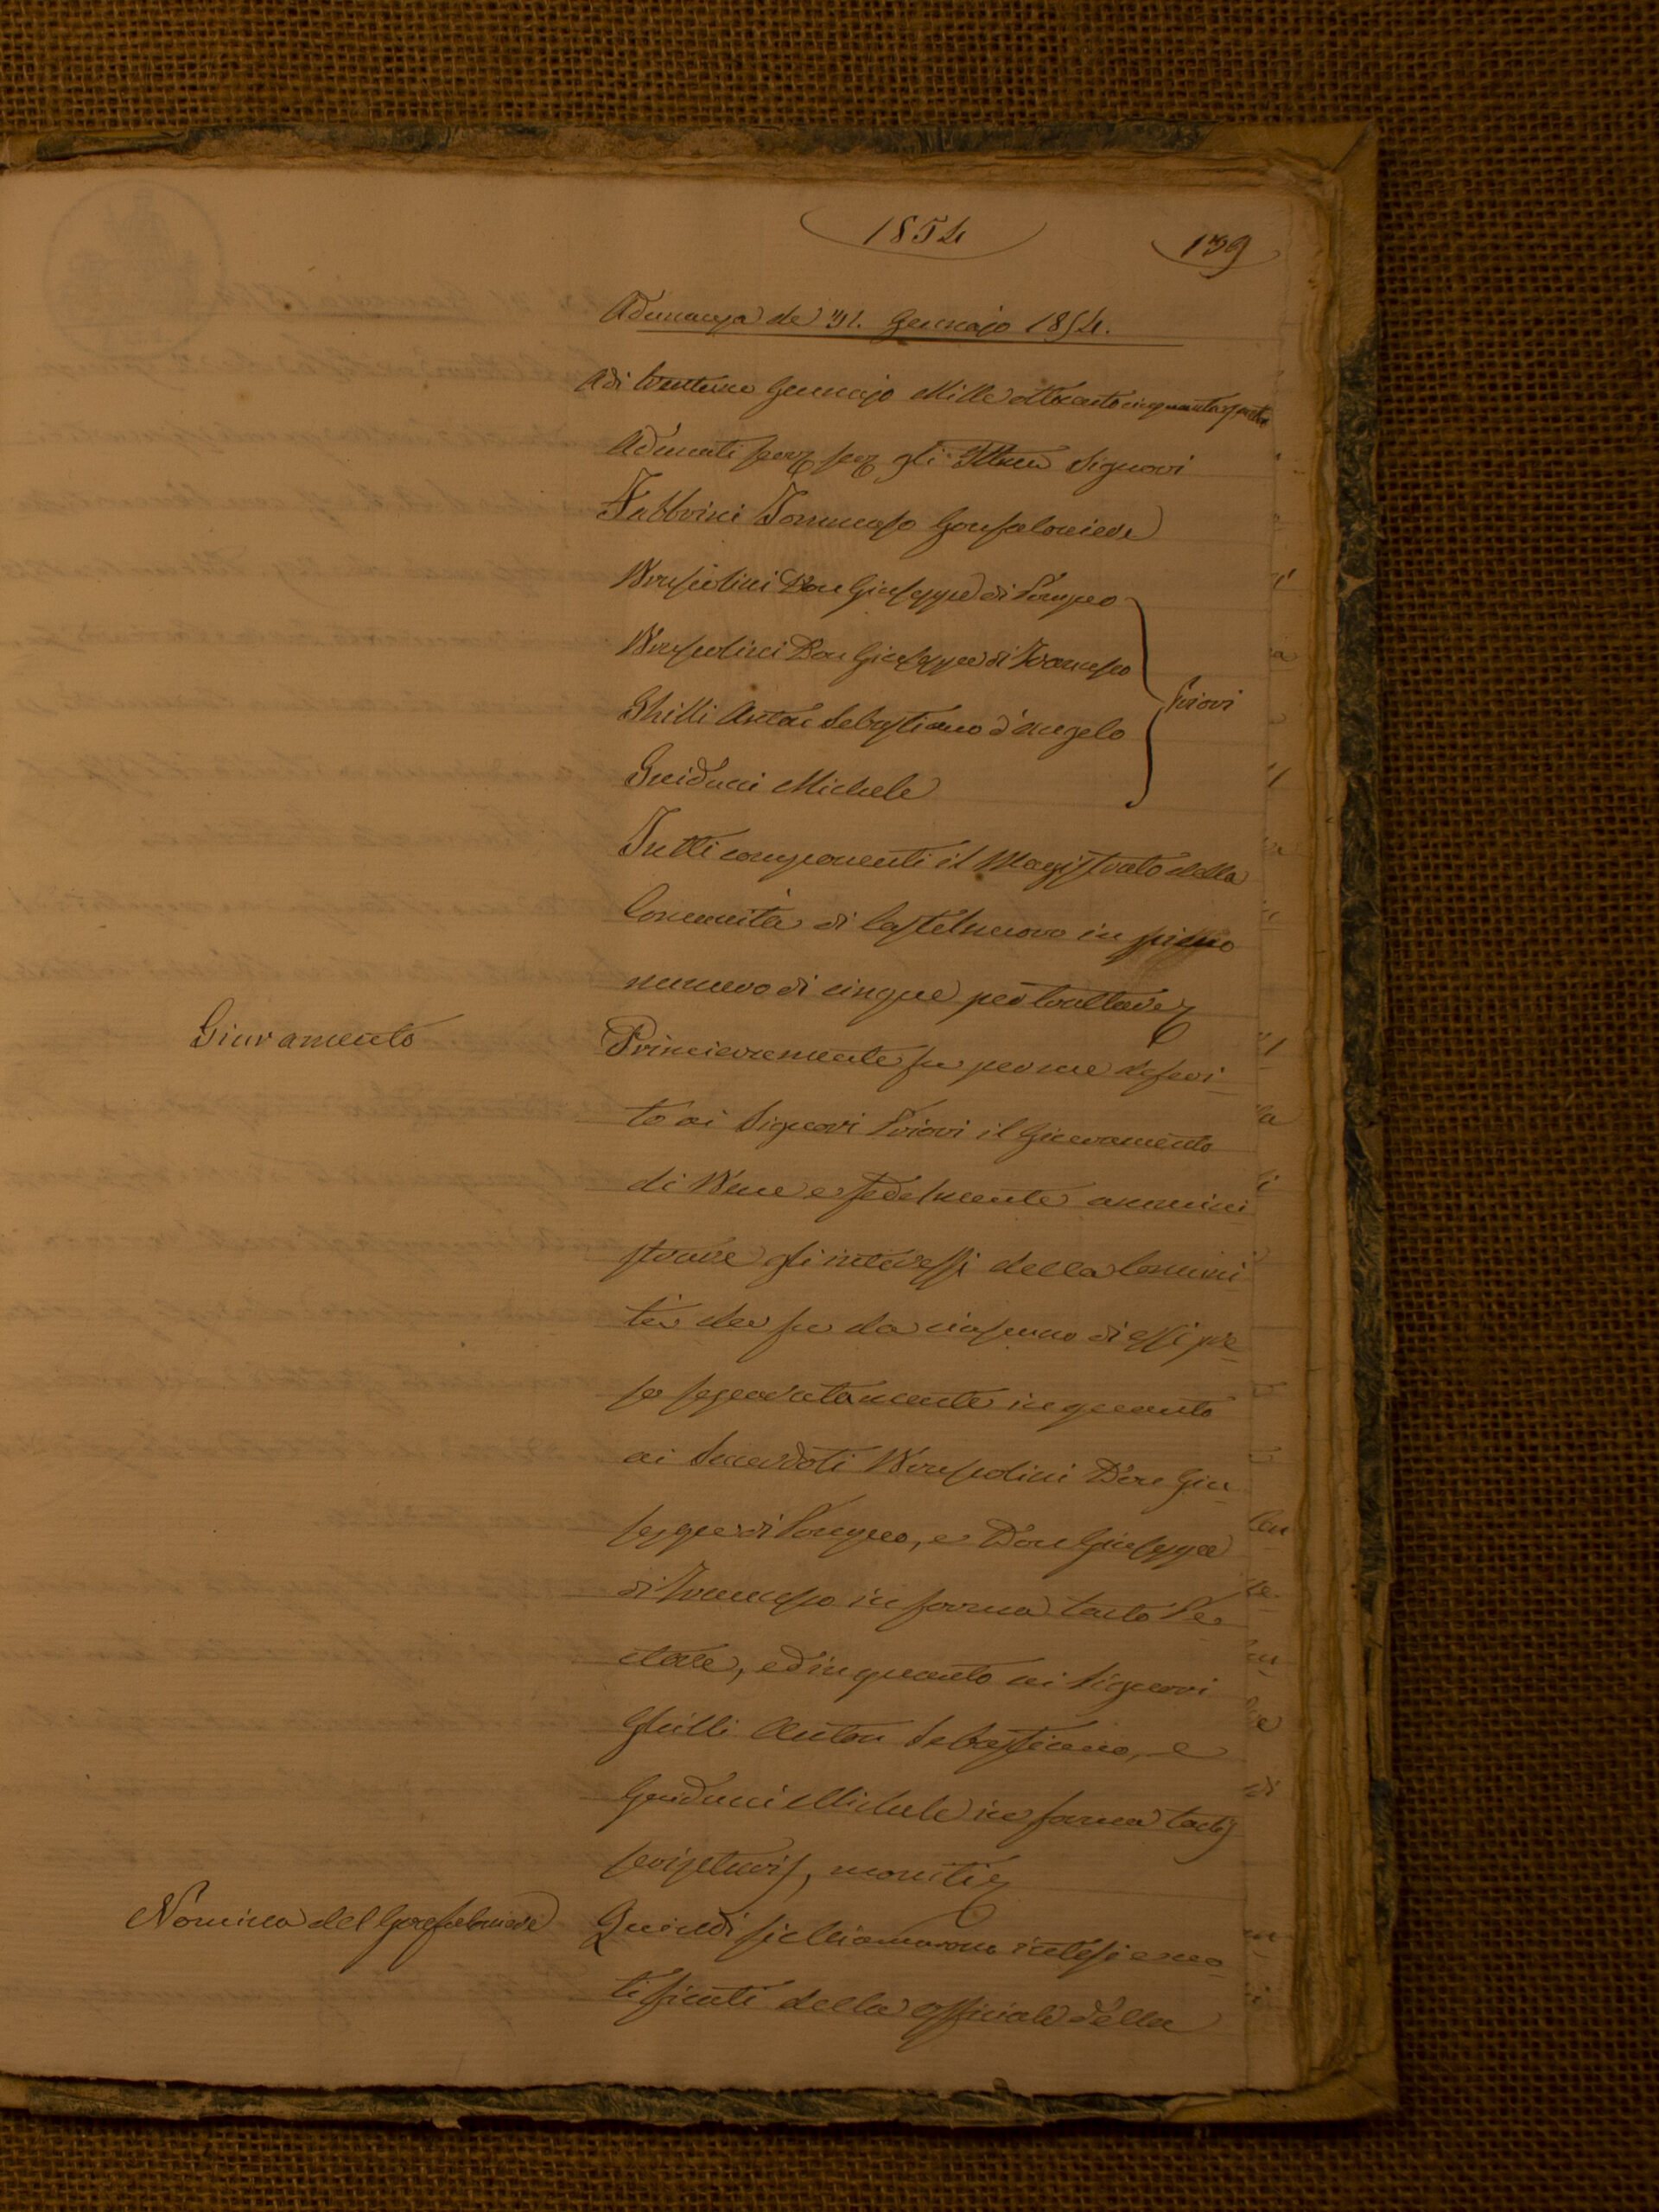 1854
139
Adunanza de' 31. Gennajo 1854.
Adi trentuno Gennajo Mille ottocento cinquantaquattro
Adunati serv: serv: gli Illmi Signori
Fabbrini Tommaso Gonfaloniere
Bruscolini Don Giuseppe di Pompeo
Bruscolini Don Giuseppe di Francesco
Ghilli Anton Sebastiano d'Angelo
Guiducci Michele
Priori
Tutti componenti il Magistrato della
Comunità di Castelnuovo in pieno
numero di cinque per trattare
Giuramento
Primieramente fu per me deferi
to ai Signori Priori il Giuramento
di Bene e fedelmente ammini
strare gli interessi della Comuni
tà che fu da ciascuno di essi pre
so separatamente in quanto
ai Sacerdoti Bruscolini Don Giu
seppe di Pompeo, e Don Giuseppe
di Francesco in forma tacto Pe
ctore, ed in quanto ai Signori
Ghilli Anton Sebastiano, e
Guiducci Michele in forma tactis
scripturis, moniti
Nomina del Gonfaloniere
Quindi si chiamarono intesi e no
tiziati della officiale della